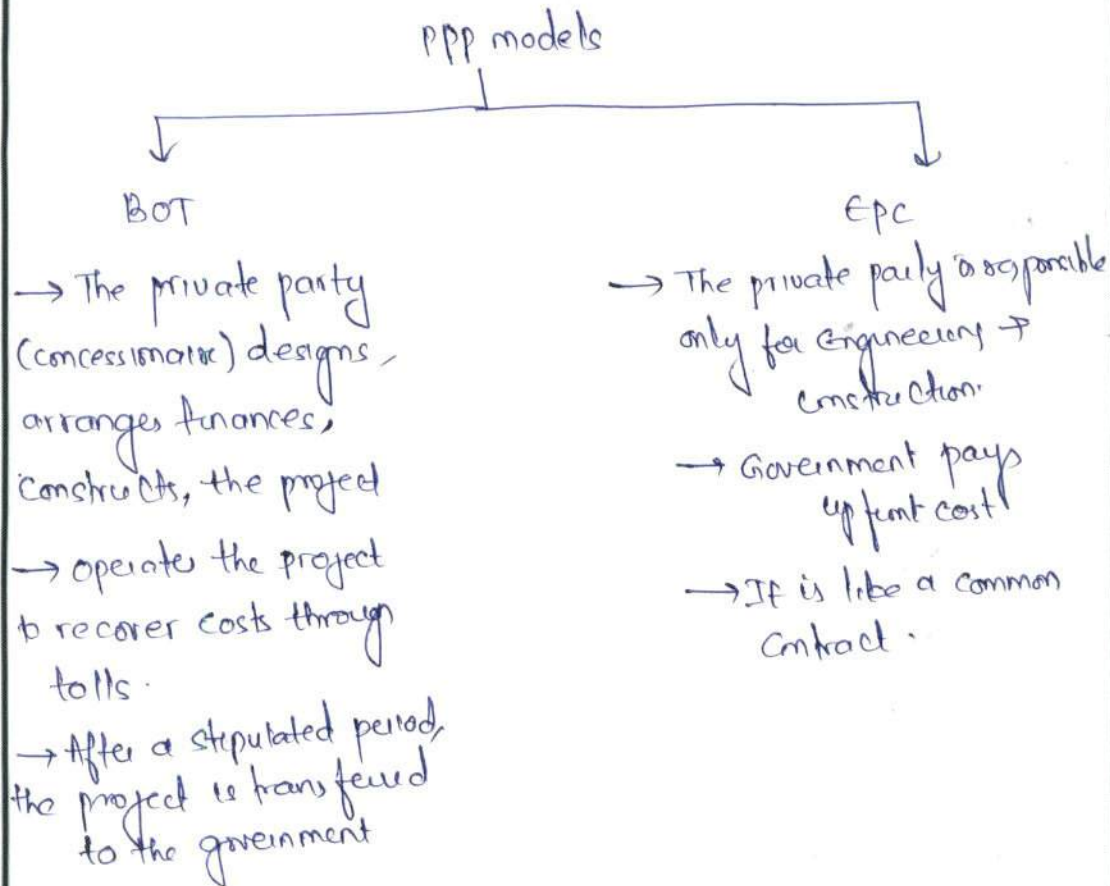 PPP models
BOT
→ The private party
(concessionaire) designs,
arranges finances,
constructs, the project
→ operates the project
to recover costs through
tolls.
→ After a stipulated period,
the project is transferred
to the government
EPC
→ The private party is responsible
only for Engineering +
construction.
→ Government pays
upfront cost
→ It is like a common
contract.